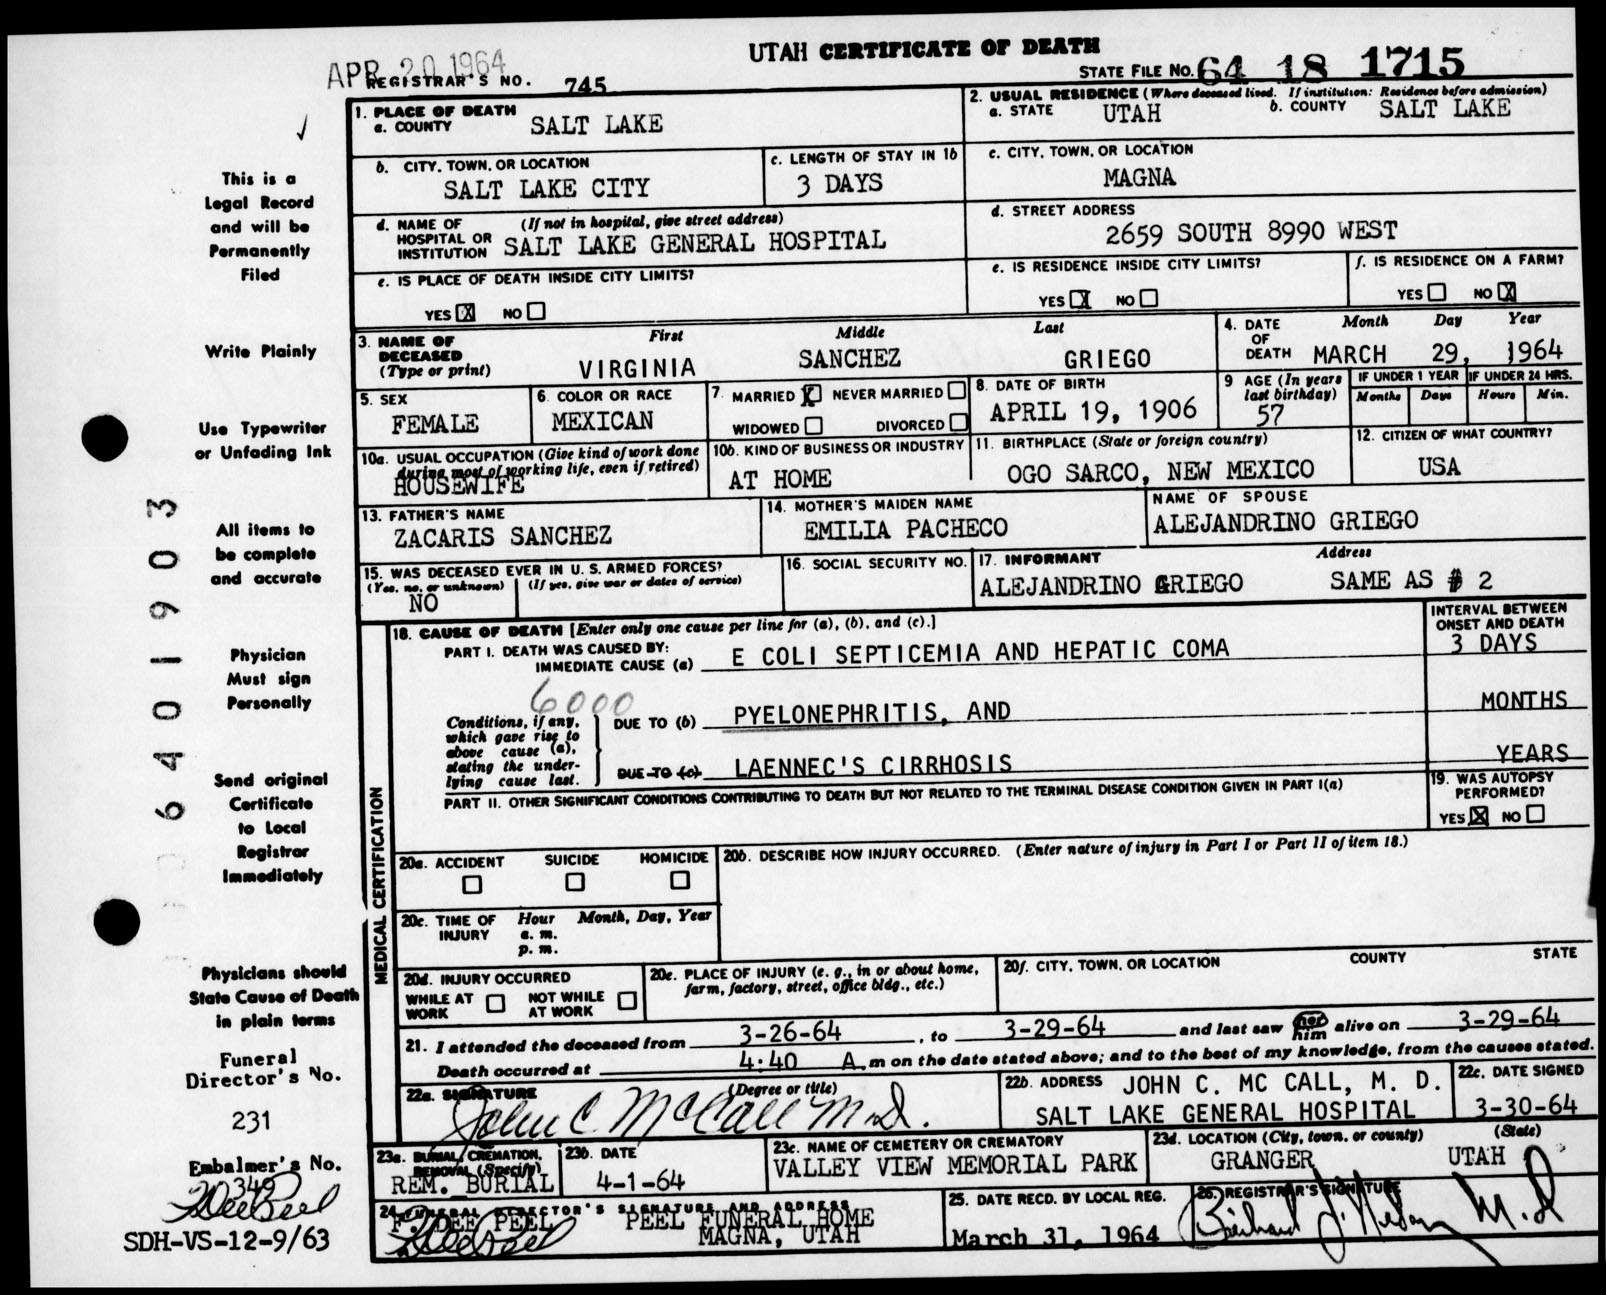 UTAH CERTIFICATE OF DEATH
APR 20 1964
REGISTRAR'S NO. 745
STATE FILE NO. 64 18 1715
1. PLACE OF DEATH
a. COUNTY SALT LAKE
2. USUAL RESIDENCE (Where deceased lived. If institution: Residence before admission)
a. STATE UTAH b. COUNTY SALT LAKE
b. CITY, TOWN, OR LOCATION
SALT LAKE CITY
c. LENGTH OF STAY IN 1b
3 DAYS
c. CITY, TOWN, OR LOCATION
MAGNA
d. NAME OF HOSPITAL OR INSTITUTION (If not in hospital, give street address)
SALT LAKE GENERAL HOSPITAL
d. STREET ADDRESS
2659 SOUTH 8990 WEST
e. IS PLACE OF DEATH INSIDE CITY LIMITS?
YES X NO
e. IS RESIDENCE INSIDE CITY LIMITS?
YES X NO
f. IS RESIDENCE ON A FARM?
YES NO X
3. NAME OF DECEASED (Type or print)
First Middle Last
VIRGINIA SANCHEZ GRIEGO
4. DATE OF DEATH
Month Day Year
MARCH 29, 1964
5. SEX
FEMALE
6. COLOR OR RACE
MEXICAN
7. MARRIED X NEVER MARRIED
WIDOWED DIVORCED
8. DATE OF BIRTH
APRIL 19, 1906
9 AGE (In years last birthday)
57
IF UNDER 1 YEAR
Months Days
IF UNDER 24 HRS.
Hours Min.
10a. USUAL OCCUPATION (Give kind of work done during most of working life, even if retired)
HOUSEWIFE
10b. KIND OF BUSINESS OR INDUSTRY
AT HOME
11. BIRTHPLACE (State or foreign country)
OGO SARCO, NEW MEXICO
12. CITIZEN OF WHAT COUNTRY?
USA
13. FATHER'S NAME
ZACARIS SANCHEZ
14. MOTHER'S MAIDEN NAME
EMILIA PACHECO
NAME OF SPOUSE
ALEJANDRINO GRIEGO
15. WAS DECEASED EVER IN U. S. ARMED FORCES?
(Yes, no, or unknown) (If yes, give war or dates of service)
NO
16. SOCIAL SECURITY NO.
17. INFORMANT Address
ALEJANDRINO GRIEGO SAME AS # 2
MEDICAL CERTIFICATION
18. CAUSE OF DEATH [Enter only one cause per line for (a), (b), and (c).]
INTERVAL BETWEEN ONSET AND DEATH
PART I. DEATH WAS CAUSED BY:
IMMEDIATE CAUSE (a) E COLI SEPTICEMIA AND HEPATIC COMA 3 DAYS
6000
Conditions, if any, which gave rise to above cause (a), stating the underlying cause last.
DUE TO (b) PYELONEPHRITIS, AND MONTHS
DUE TO (c) LAENNEC'S CIRRHOSIS YEARS
PART II. OTHER SIGNIFICANT CONDITIONS CONTRIBUTING TO DEATH BUT NOT RELATED TO THE TERMINAL DISEASE CONDITION GIVEN IN PART I(a)
19. WAS AUTOPSY PERFORMED?
YES X NO
20a. ACCIDENT SUICIDE HOMICIDE
20b. DESCRIBE HOW INJURY OCCURRED. (Enter nature of injury in Part I or Part II of item 18.)
20c. TIME OF INJURY Hour Month, Day, Year
a. m.
p. m.
20d. INJURY OCCURRED
WHILE AT WORK NOT WHILE AT WORK
20e. PLACE OF INJURY (e. g., in or about home, farm, factory, street, office bldg., etc.)
20f. CITY, TOWN, OR LOCATION COUNTY STATE
21. I attended the deceased from 3-26-64, to 3-29-64 and last saw her him alive on 3-29-64
Death occurred at 4:40 A.m on the date stated above; and to the best of my knowledge, from the causes stated.
22a. SIGNATURE (Degree or title)
John C McCall M.D.
22b. ADDRESS JOHN C. MC CALL, M. D.
SALT LAKE GENERAL HOSPITAL
22c. DATE SIGNED
3-30-64
23a. BURIAL, CREMATION, REMOVAL (Specify)
REM. BURIAL
23b. DATE
4-1-64
23c. NAME OF CEMETERY OR CREMATORY
VALLEY VIEW MEMORIAL PARK
23d. LOCATION (City, town, or county) (State)
GRANGER UTAH
24. FUNERAL DIRECTOR'S SIGNATURE AND ADDRESS
F. DEE PEEL PEEL FUNERAL HOME
MAGNA, UTAH
25. DATE RECD. BY LOCAL REG.
March 31, 1964
26. REGISTRAR'S SIGNATURE
M.D
This is a
Legal Record
and will be
Permanently
Filed
Write Plainly
Use Typewriter
or Unfading Ink
All items to
be complete
and accurate
Physician
Must sign
Personally
Send original
Certificate
to Local
Registrar
Immediately
Physicians should
State Cause of Death
in plain terms
Funeral
Director's No.
231
Embalmer's No.
349
SDH-VS-12-9/63
6401903